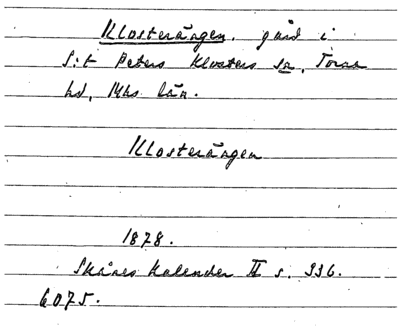 Klosterängen, gård i
S:t Peters Klosters sn, Torna
hd, Mhs län.
Klosterängen
1878.
Skånes Kalender II s. 336.
6075.